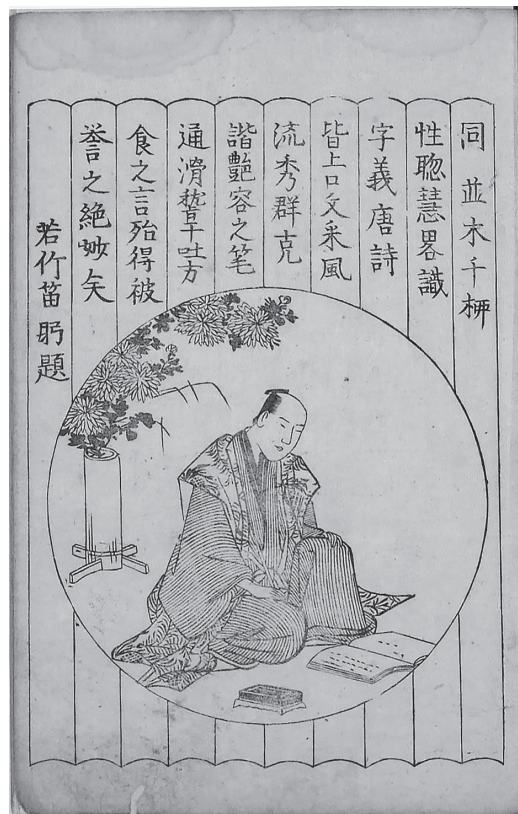 同並木千柳
性聡慧畧識
字義唐詩
皆上口文采風
流秀群克
諧艶容之笔
通滑稽吐方
食之言殆得被
誉之絶妙矣
若竹笛躬題